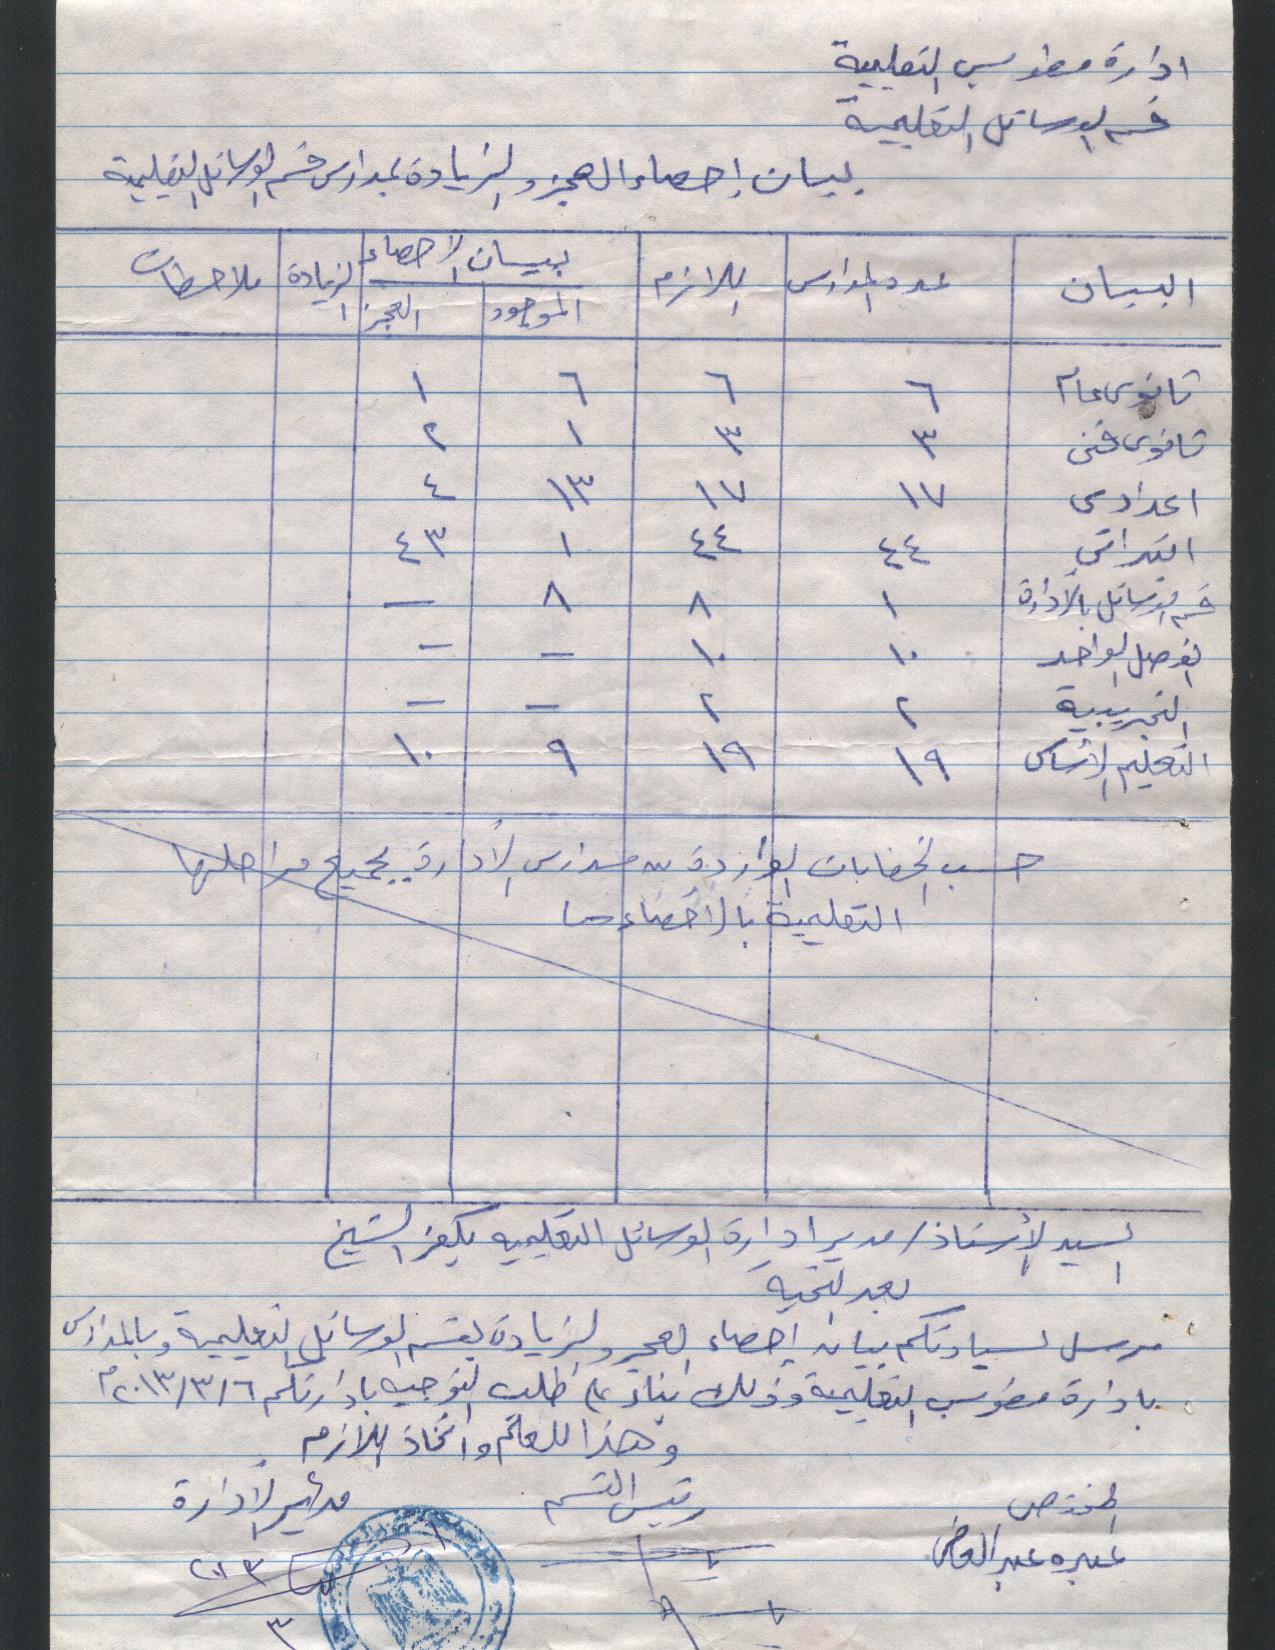 ادارة مطوبس التعليمية
قسم الوسائل التعليمية
بيان إحصاء العجز والزيادة بمدارس قسم الوسائل التعليمية
البيان عدد المدارس اللازم بيان الاحصاء الزيادة ملاحظات
الموجود العجز
ثانوى عام ٦ ٦ ٦ ١
ثانوى فنى ٣ ٣ ١ ٢
اعدادى ١٧ ١٧ ١٣ ٤
ابتدائى ٤٤ ٤٤ ١ ٤٣
قسم الوسائل بالأدارة ١ ٨ ٨ —
الفصل الواحد ١٠ ١٠ — —
التجريبية ٢ ٢ — —
التعليم الأساسى ١٩ ١٩ ٩ ١٠
حسب الخطابات الواردة من مدارس الأدارة بجميع مراحلها
التعليمية بالأحصاء
السيد الأستاذ / مدير ادارة الوسائل التعليمية بكفر الشيخ
بعد التحية
مرسل لسيادتكم بيان إحصاء العجز والزيادة بقسم الوسائل التعليمية وبالمدارس
بادارة مطوبس التعليمية وذلك بناء على طلب التوجيه بادارتكم ٢٠١٣/٣/٦م
وهذا للعلم واتخاذ اللازم
المختص رئيس القسم مدير الادارة
عبده عبد العاطى